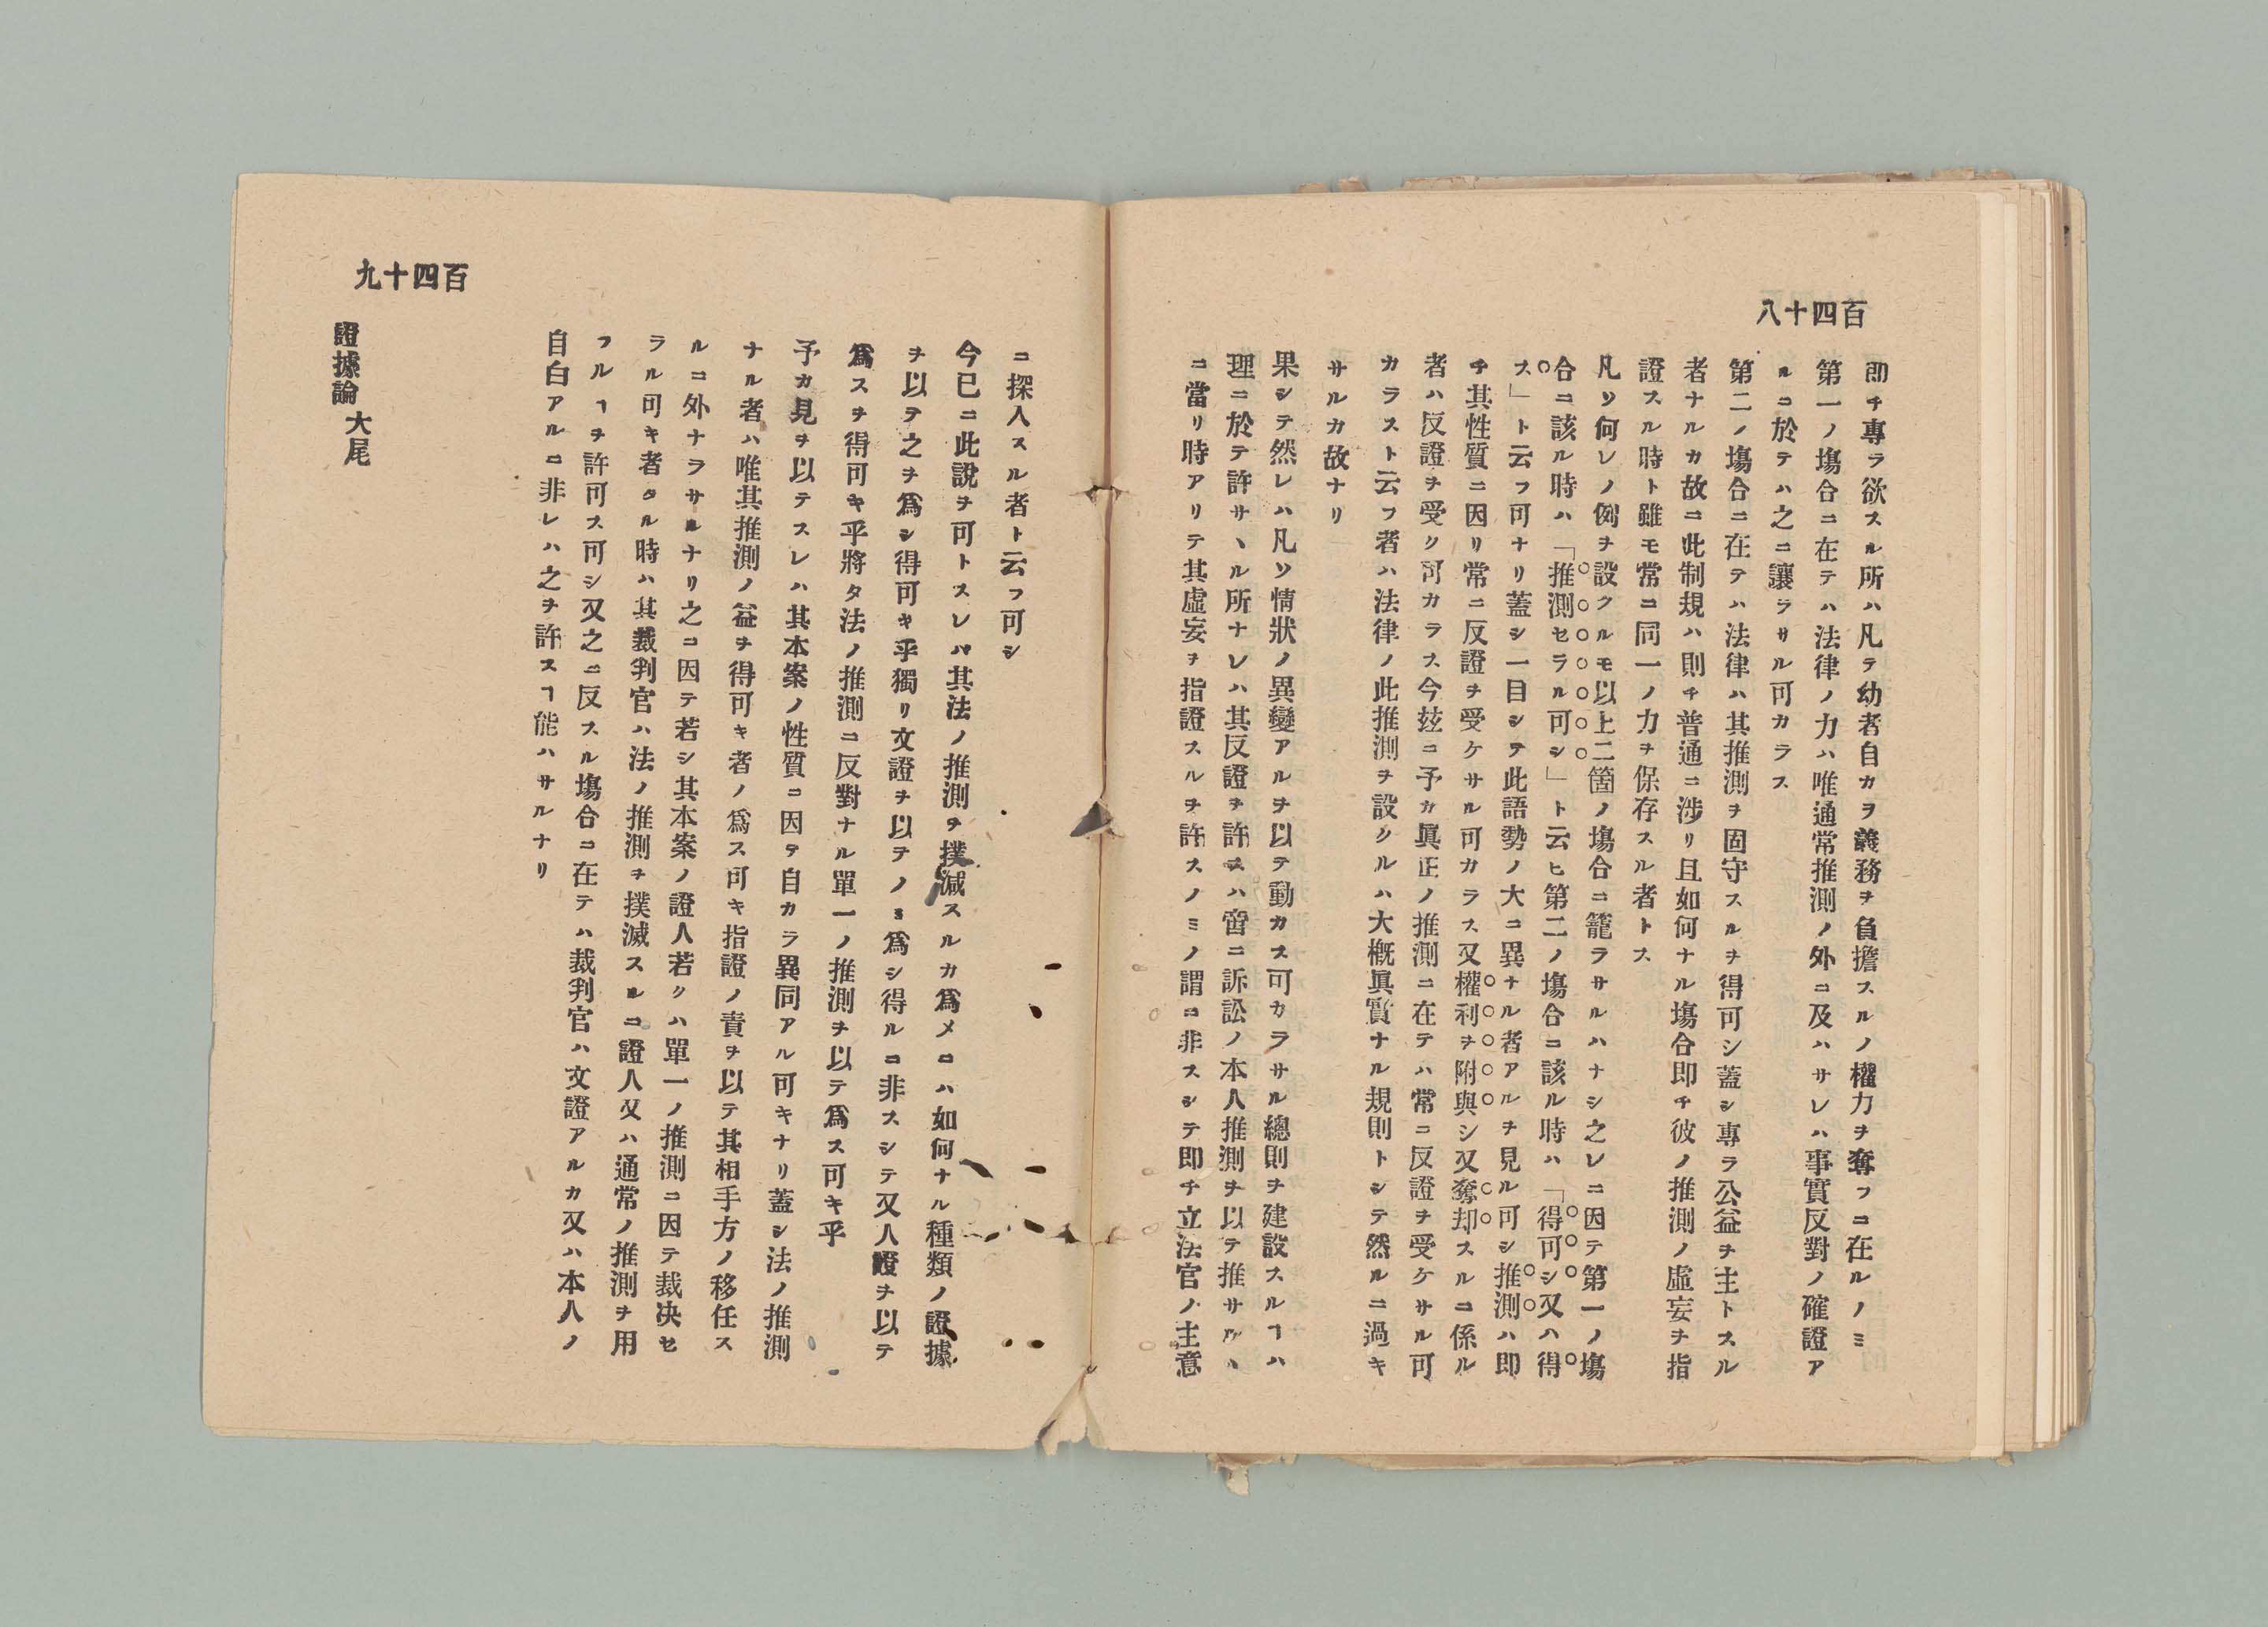 百四十八
即チ專ラ欲スル所ハ凡テ幼者自カヲ義務ヲ負擔スルノ權力ヲ奪フニ在ルノミ
第一ノ塲合ニ在テハ法律ノ力ハ唯通常推測ノ外ニ及ハサレハ事實反對ノ確證ア
ルニ於テハ之ニ讓ラサル可カラス
第二ノ塲合ニ在テハ法律ハ其推測ヲ固守スルヲ得可シ蓋シ專ラ公益ヲ主トスル
者ナルカ故ニ此制規ハ則チ普通ニ涉リ且如何ナル塲合即チ彼ノ推測ノ虛妄ヲ指
證スル時ト雖モ常ニ同一ノ力ヲ保存スル者トス
凡ソ何レノ例ヲ設クルモ以上二箇ノ塲合ニ籠ラサルハナシ之レニ因テ第一ノ塲
合ニ該ル時ハ「推測セラル可シ」ト云ヒ第二ノ塲合ニ該ル時ハ「得可シ又ハ得
ス」ト云フ可ナリ蓋シ一目シテ此語勢ノ大ニ異ナル者アルヲ見ル可シ推測ハ即
チ其性質ニ因リ常ニ反證ヲ受ケサル可カラス又權利ヲ附與シ又奪却スルニ係ル
者ハ反證ヲ受ク可カラス今玆ニ予カ眞正ノ推測ニ在テハ常ニ反證ヲ受ケサル可
カラスト云フ者ハ法律ノ此推測ヲ設クルハ大槪眞實ナル規則トシテ然ルニ過キ
サルカ故ナリ
果シテ然レハ凡ソ情狀ノ異變アルヲ以テ動カス可カラサル總則ヲ建設スルヿハ
理ニ於テ許サヽル所ナレハ其反證ヲ許スハ啻ニ訴訟ノ本人推測ヲ以テ推サルヽ
ニ當リ時アリテ其虛妄ヲ指證スルヲ許スノミノ謂ニ非スシテ即チ立法官ノ主意
百四十九
ニ探入スル者ト云フ可シ
今已ニ此說ヲ可トスレハ其法ノ推測ヲ撲滅スルカ爲メニハ如何ナル種類ノ證據
ヲ以テ之ヲ爲シ得可キ乎獨リ文證ヲ以テノミ爲シ得ルニ非スシテ又人證ヲ以テ
爲スヲ得可キ乎將タ法ノ推測ニ反對ナル單一ノ推測ヲ以テ爲ス可キ乎
予カ見ヲ以テスレハ其本案ノ性質ニ因テ自カラ異同アル可キナリ蓋シ法ノ推測
ナル者ハ唯其推測ノ益ヲ得可キ者ノ爲ス可キ指證ノ責ヲ以テ其相手方ノ移任ス
ルニ外ナラサルナリ之ニ因テ若シ其本案ノ證人若クハ單一ノ推測ニ因テ裁决セ
ラル可キ者タル時ハ其裁判官ハ法ノ推測ヲ撲滅スルニ證人又ハ通常ノ推測ヲ用
フルヿヲ許可ス可シ又之ニ反スル塲合ニ在テハ裁判官ハ文證アルカ又ハ本人ノ
自白アルニ非レハ之ヲ許スヿ能ハサルナリ
證據論大尾